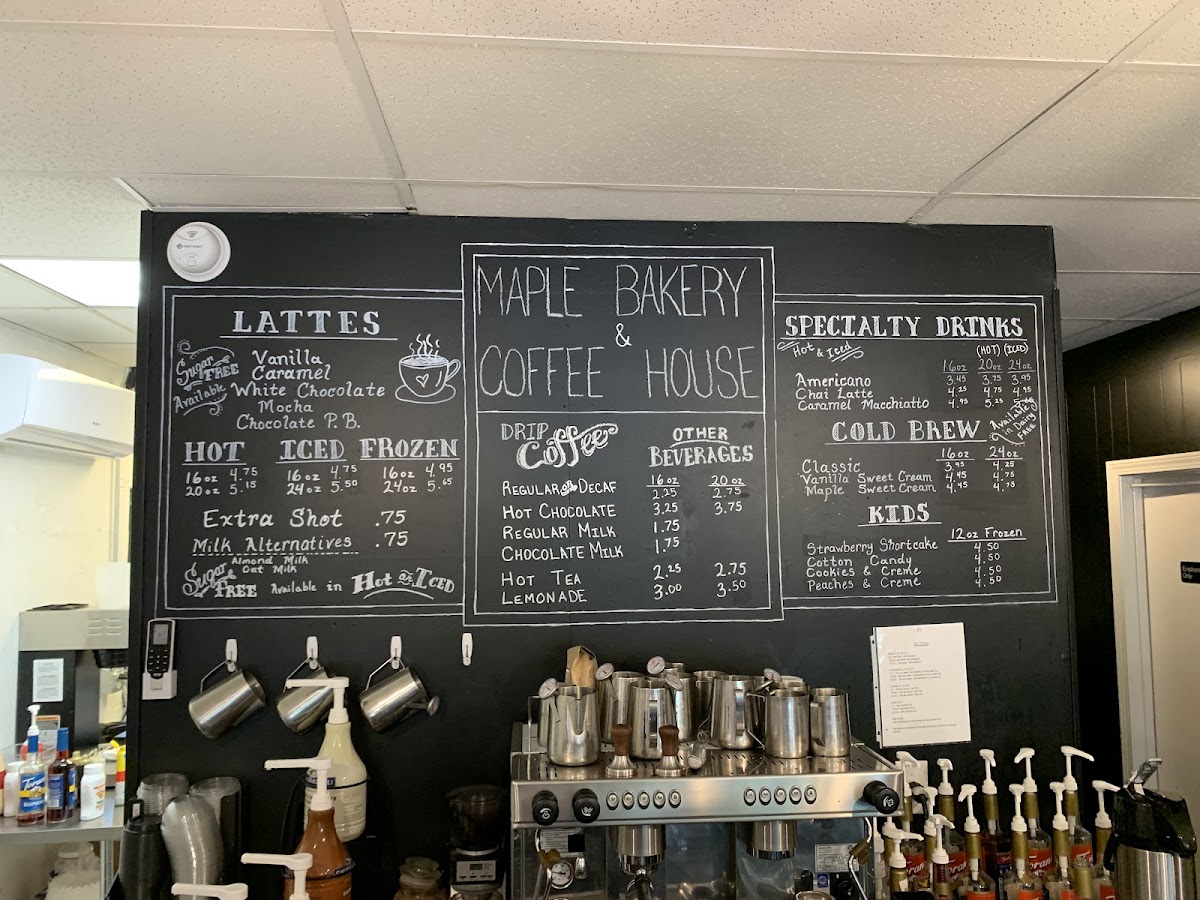 LATTES
Sugar FREE Available
Vanilla
Caramel
White Chocolate
Mocha
Chocolate P.B.
HOT ICED FROZEN
16oz 4.75 16oz 4.75 16oz 4.95
20oz 5.15 24oz 5.50 24oz 5.65
Extra Shot .75
Milk Alternatives .75
Almond Milk
Oat Milk
Sugar FREE Available in Hot or Iced
MAPLE BAKERY
&
COFFEE HOUSE
DRIP Coffee
OTHER BEVERAGES
16oz 20oz
REGULAR or DECAF 2.25 2.75
HOT CHOCOLATE 3.25 3.75
REGULAR MILK 1.75
CHOCOLATE MILK 1.75
HOT TEA 2.25 2.75
LEMONADE 3.00 3.50
SPECIALTY DRINKS
Hot & Iced
(HOT) (ICED)
16oz 20oz 24oz
Americano 3.45 3.75 3.95
Chai Latte 4.25 4.75 4.95
Caramel Macchiatto 4.95 5.25
COLD BREW
Available in Dairy FREE
16oz 24oz
Classic 3.95 4.25
Vanilla Sweet Cream 4.45 4.75
Maple Sweet Cream 4.45 4.75
KIDS
12oz Frozen
Strawberry Shortcake 4.50
Cotton Candy 4.50
Cookies & Creme 4.50
Peaches & Creme 4.50
Employees Only
Torani